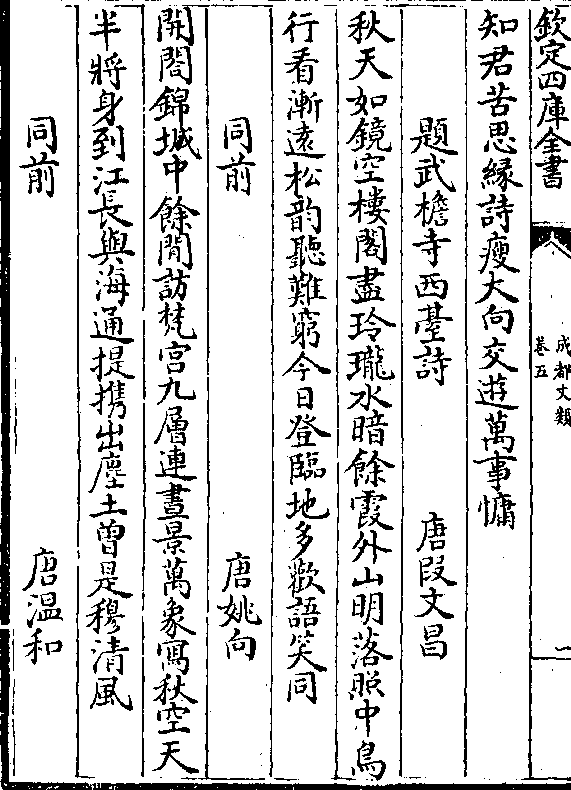 欽定四庫全書
成都文類
卷五
一
知君苦思縁詩瘦大向交遊萬事慵
題武檐寺西臺詩 唐段文昌
秋天如鏡空樓閣盡玲瓏水暗餘霞外山明落照中鳥
行看漸逺松韵聽難窮今日登臨地多歡語笑同
同前 唐姚向
開閤錦城中餘閒訪梵宮九層連晝景萬象寫秋空天
半將身到江長與海通提携出塵土曽是穆清風
同前 唐温和